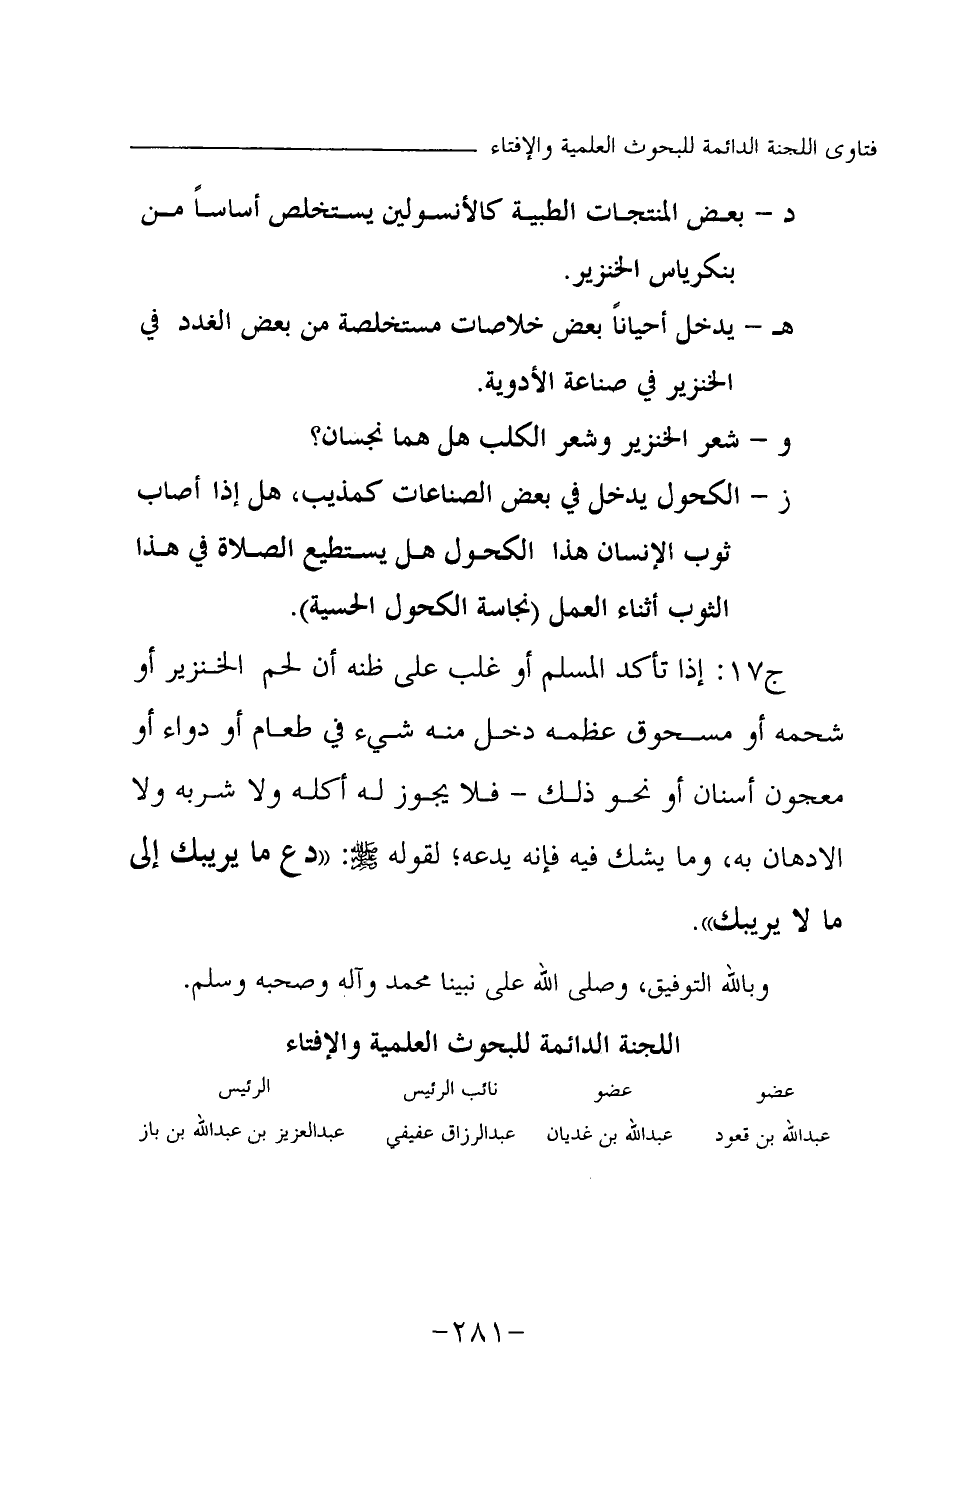 فتاوى اللجنة الدائمة للبحوث العلمية والإفتاء
د – بعض المنتجات الطبية كالأنسولين يستخلص أساساً من
بنكرياس الخنزير.
هـ – يدخل أحياناً بعض خلاصات مستخلصة من بعض الغدد في
الخنزير في صناعة الأدوية.
و – شعر الخنزير وشعر الكلب هل هما نجسان؟
ز – الكحول يدخل في بعض الصناعات كمذيب، هل إذا أصاب
ثوب الإنسان هذا الكحول هل يستطيع الصلاة في هذا
الثوب أثناء العمل (نجاسة الكحول الحسية).
ج١٧: إذا تأكد المسلم أو غلب على ظنه أن لحم الخنزير أو
شحمه أو مسحوق عظمه دخل منه شيء في طعام أو دواء أو
معجون أسنان أو نحو ذلك – فلا يجوز له أكله ولا شربه ولا
الادهان به، وما يشك فيه فإنه يدعه؛ لقوله ﷺ: «دع ما يريبك إلى
ما لا يريبك».
وبالله التوفيق، وصلى الله على نبينا محمد وآله وصحبه وسلم.
اللجنة الدائمة للبحوث العلمية والإفتاء
عضو عضو نائب الرئيس الرئيس
عبدالله بن قعود عبدالله بن غديان عبدالرزاق عفيفي عبدالعزيز بن عبدالله بن باز
–٢٨١–